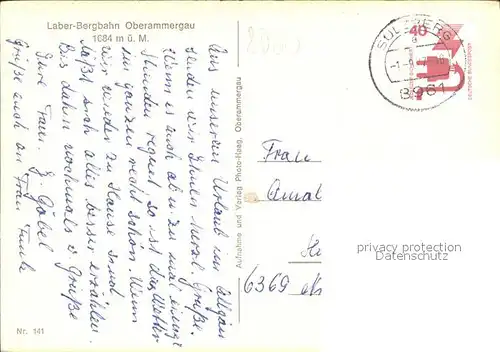 Laber-Bergbahn Oberammergau
1684 m ü. M.
Aus unserem Urlaub im Allgäu
senden wir Ihnen herzl. Grüße.
Wenn es auch ab u. zu mal einige
Stunden regnet so ist das Wetter
im ganzen recht schön. Wenn
wir wieder zu Hause sind
läßt sich alles besser erzählen.
Bis dahin nochmals v. Grüße
Ihre Fam. G. Göbel
Grüße auch an Frau Funk
Nr. 141
Aufnahme und Verlag Photo-Haag, Oberammergau
SULZBERG
8961
40
DEUTSCHE BUNDESPOST
Frau
Amal
6369
privacy protection
Datenschutz